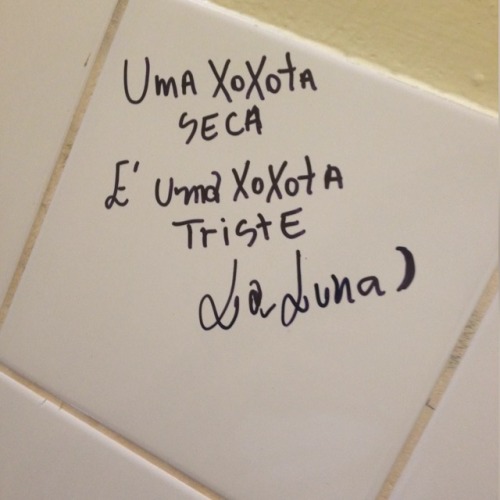 UMA XOXOTA
SECA
É UMA XOXOTA
TRISTE
La Luna)